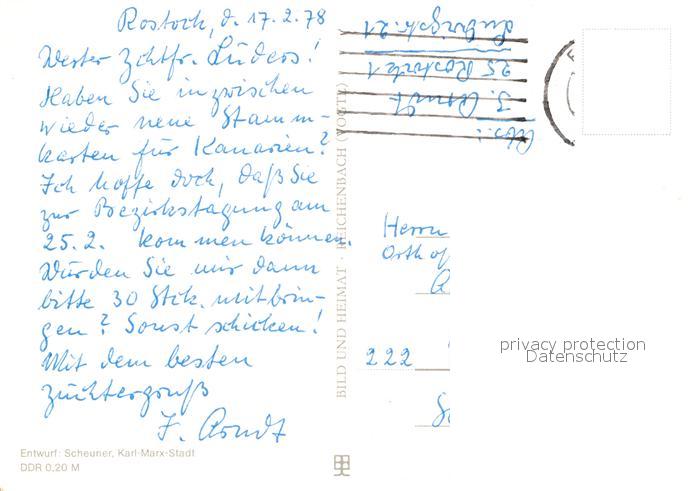 Rostock, d. 17.2.78
Werter Zchtfr. Lüders!
Haben Sie inzwischen
wieder neue Stamm-
karten für Kanarien?
Ich hoffe doch, daß Sie
zur Bezirkstagung am
25.2. kommen können.
Würden Sie mir dann
bitte 30 Stck. mitbrin-
gen? Sonst schicken!
Mit dem besten
Züchtergruß
J. Arndt
Entwurf: Scheuner, Karl-Marx-Stadt
DDR 0,20 M
BILD UND HEIMAT · REICHENBACH (VOGTL)
Abs.:
J. Arndt
25 Rostock 1
Herrn
Orth
222
privacy protection
Datenschutz